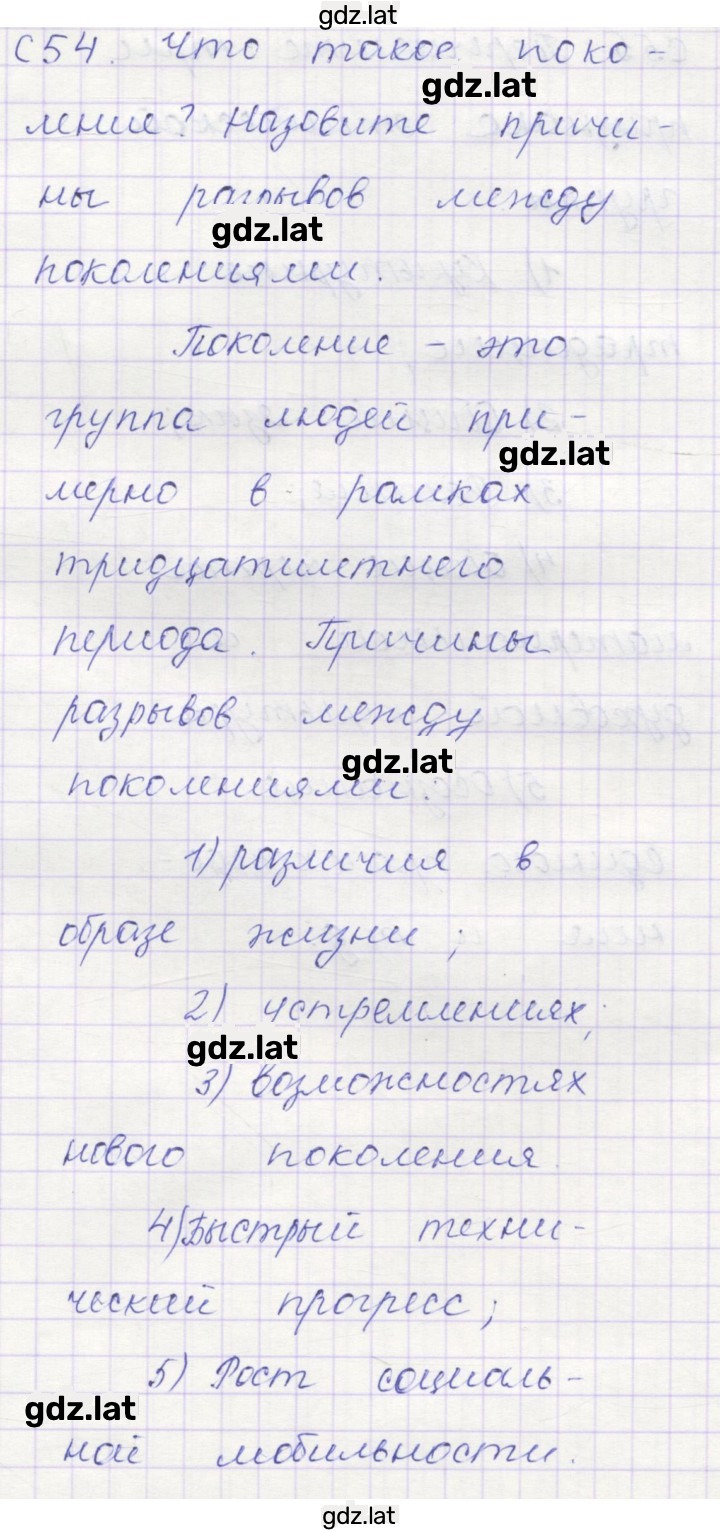 gdz.lat
С54. Что такое поко-
gdz.lat
ление? Назовите причи-
ны разрывов между
gdz.lat
поколениями.
Поколение - это
группа людей при-
gdz.lat
мерно в рамках
тридцатилетнего
периода. Причины
разрывов между
gdz.lat
поколениями.
1) различия в
образе жизни;
2) устремлениях;
gdz.lat
3) возможностях
нового поколения.
4) Быстрый техни-
ческий прогресс;
5) Рост социаль-
gdz.lat
ной мобильности.
gdz.lat